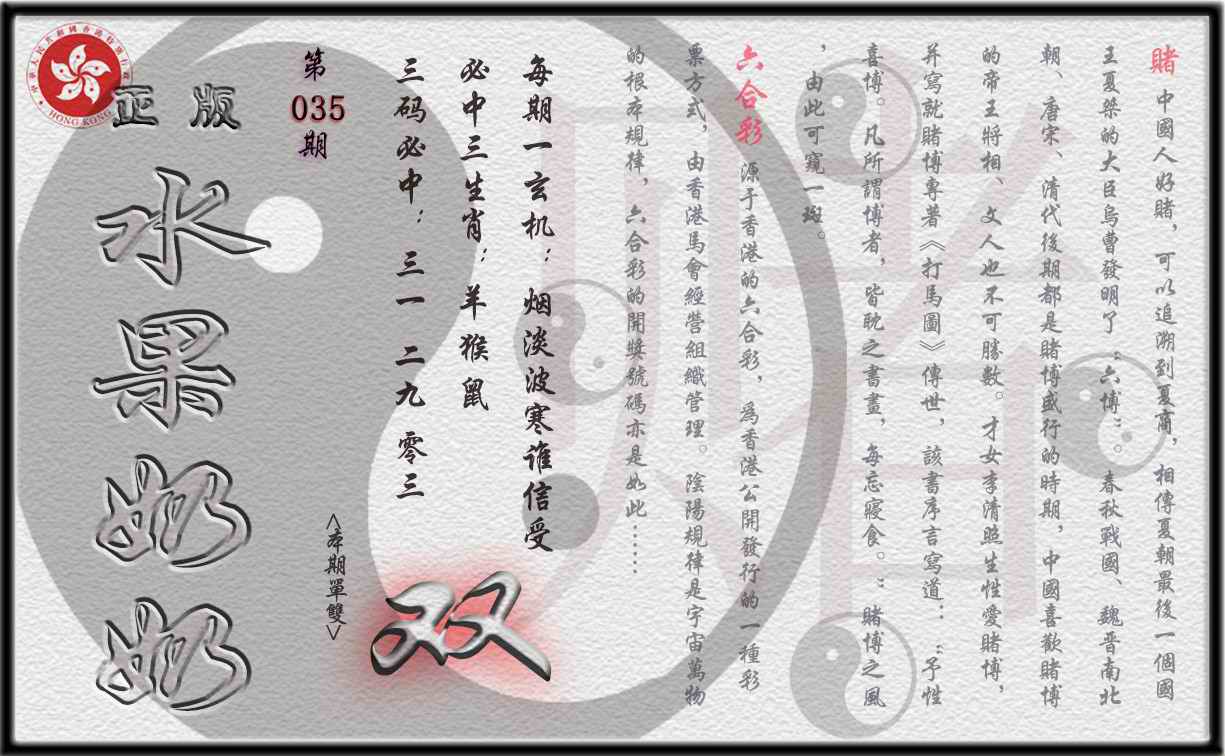 賭 中國人好賭，可以追溯到夏商，相傳夏朝最後一個國
王夏桀的大臣烏曹發明了“六博”。春秋戰國、魏晋南北
朝、唐宋、清代後期都是賭博盛行的時期，中國喜歡賭博
的帝王將相、文人也不可勝數。才女李清照生性愛賭博，
并寫就賭博專著《打馬圖》傳世，該書序言寫道：“予性
喜博。凡所謂博者，皆耽之書畫，每忘寢食。”賭博之風
，由此可窺一斑。
六合彩 源于香港的六合彩，爲香港公開發行的一種彩
票方式，由香港馬會經營組織管理。陰陽規律是宇宙萬物
的根本規律，六合彩的開獎號碼亦是如此……
每期一玄机：烟淡波寒谁信受
必中三生肖：羊猴鼠
三码必中：三一 二九 零三
双
<本期單雙>
第
035
期
正版
水果奶奶
中華人民共和國香港特別行政區
HONG KONG
賭